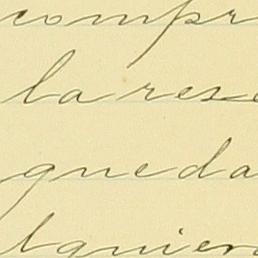 compr
la rese
queda
lquiera